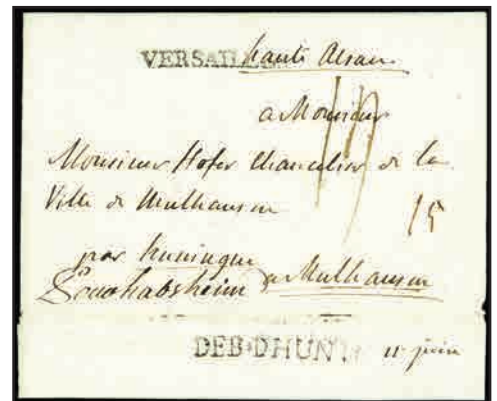 VERSAILLES haute Alsace
a Monsieur
Monsieur Hofer Chancelier de la
Ville de Mulhausen
15
par huningue
habsheim a Mulhausen
DEB·DHUN 11 juin